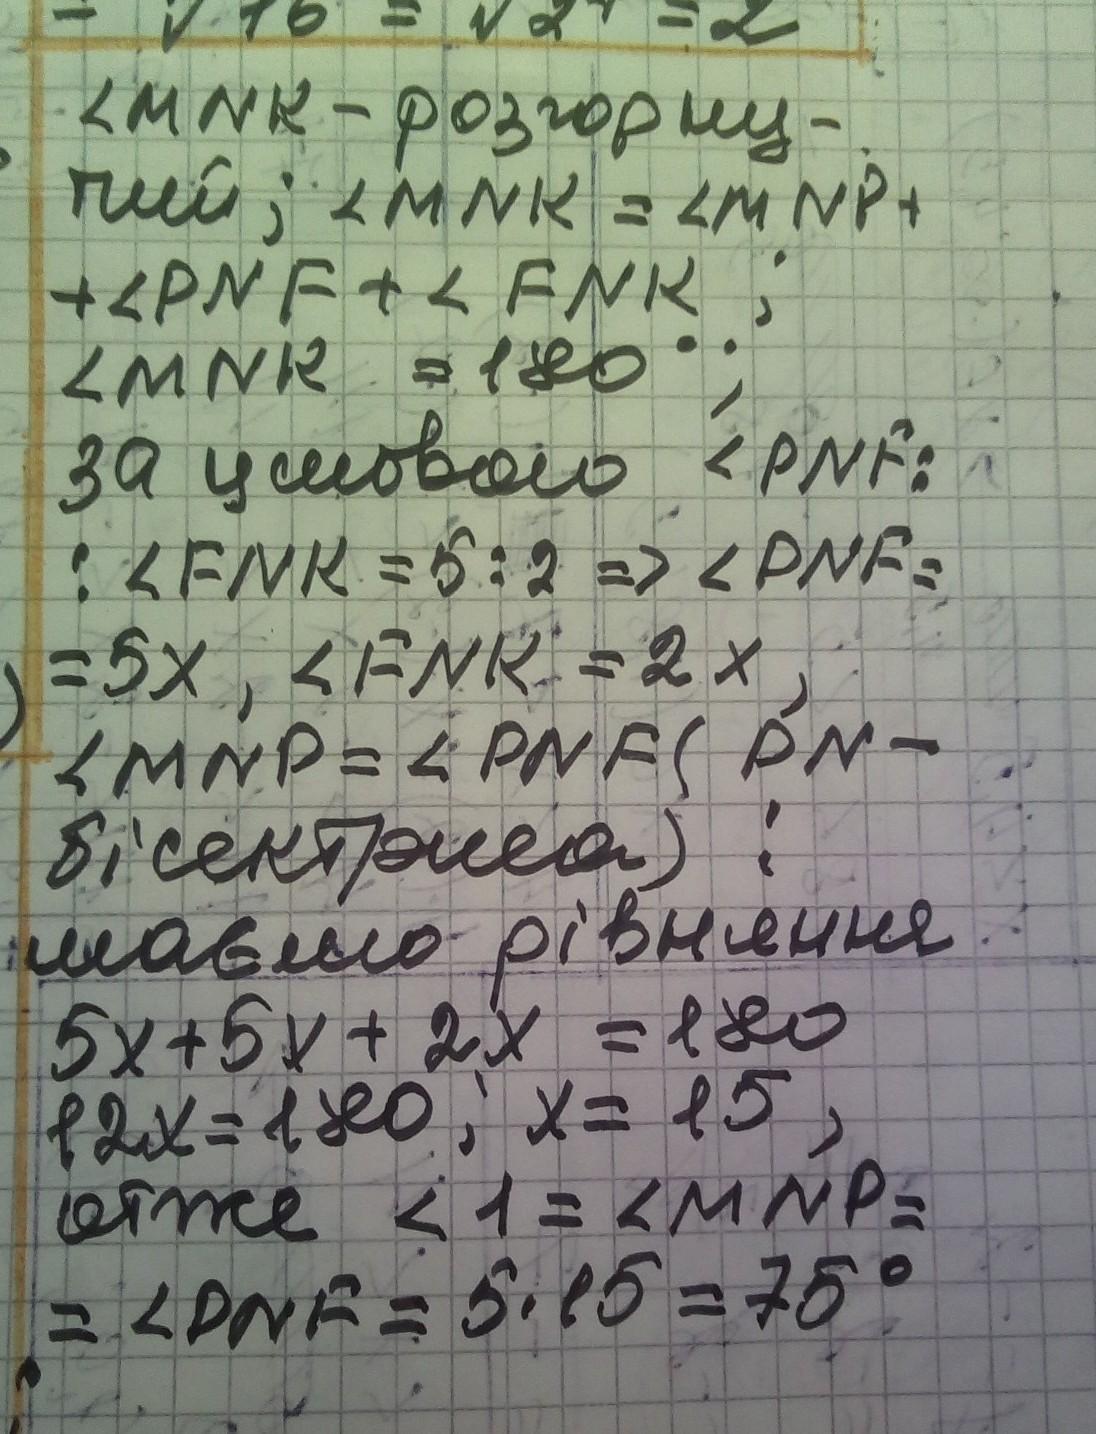 = √16 = √2⁴ = 2
<MNK - розгорну-
тий; <MNK = <MNP+
+<PNF + < FNK ;
<MNK = 180°;
за умовою <PNF:
: <FNK = 5:2 => <PNF=
= 5x, <FNK = 2x,
<MNP = <PNF ( PN -
бісектриса) :
маємо рівняння
5x+5x+2x = 180
12x=180; x= 15,
отже < 1 = <MNP=
= <PNF = 5·15 = 75°